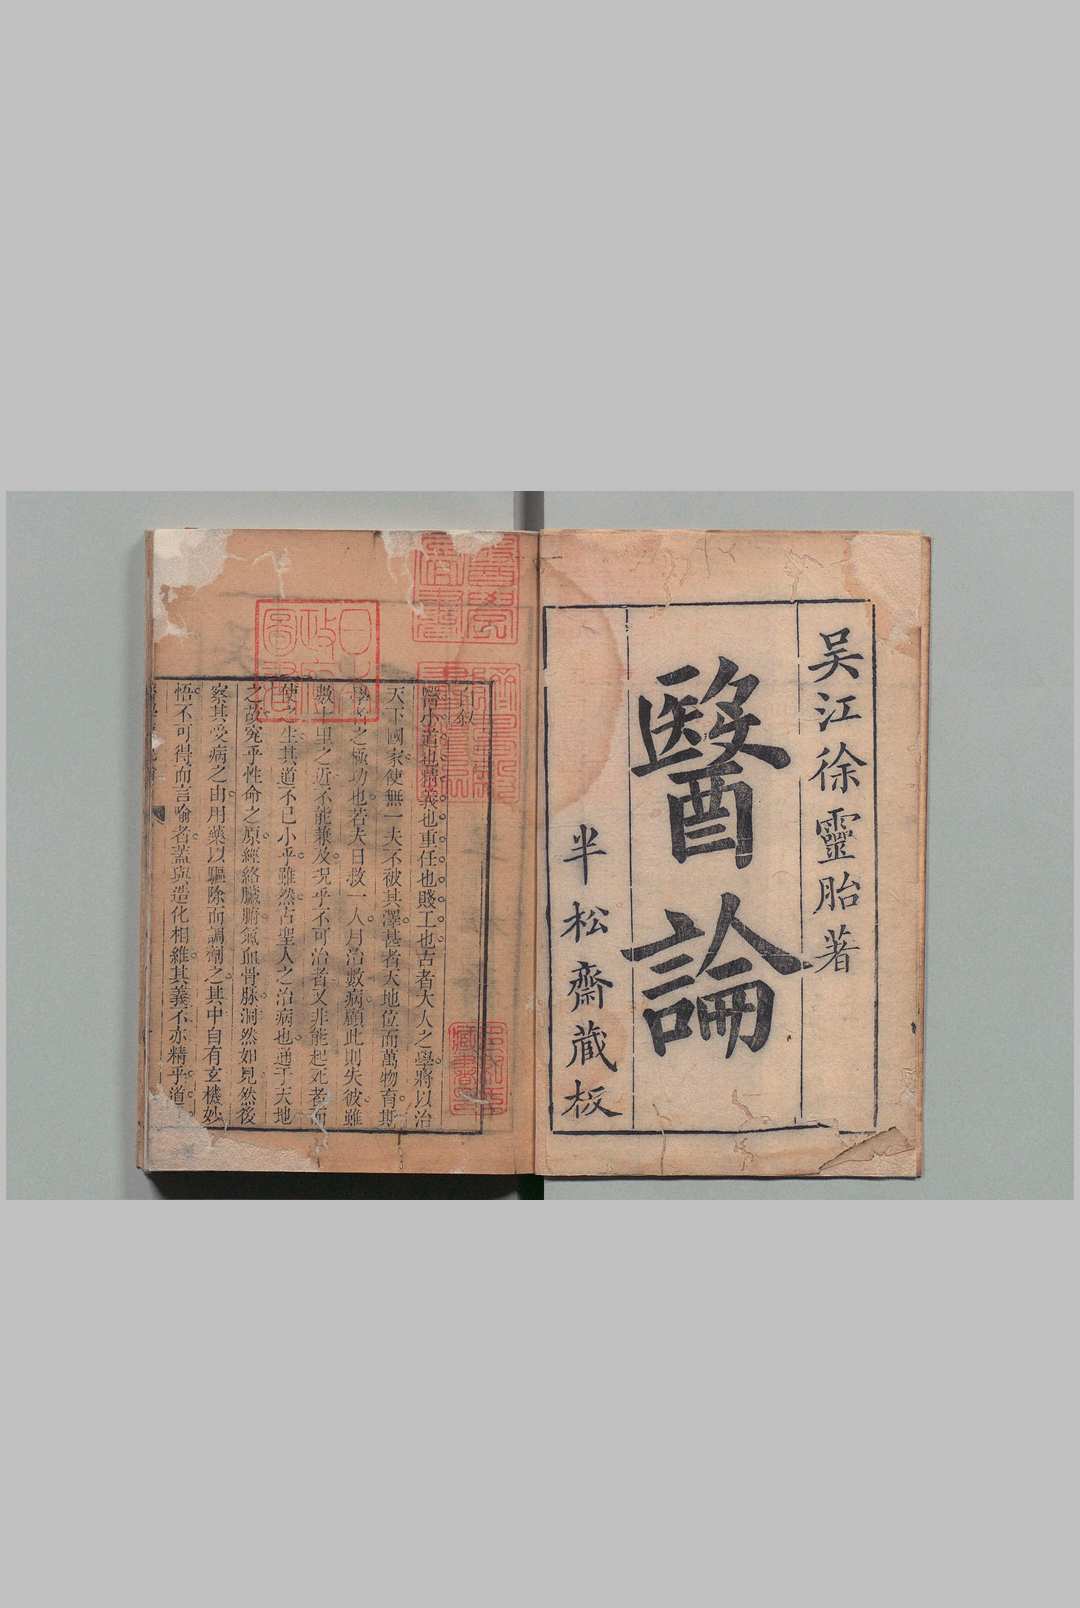 吴江徐靈胎著
醫論
半松齋藏板
自叙
醫小道也精義也重任也賤工也古者大人之學將以治
天下國家使無一夫不被其澤甚者天地位而萬物育斯
學者之極功也若夫日救一人月治數病顧此則失彼雖
數十里之近不能兼及况乎不可治者又非能起死者而
使之生其道不已小乎雖然古聖人之治病也通于天地
之故究乎性命之原經絡臟腑氣血骨脉洞然如見然後
察其受病之由用藥以驅除而調劑之其中自有玄機妙
悟不可得而言喻者蓋與造化相維其義不亦精乎道